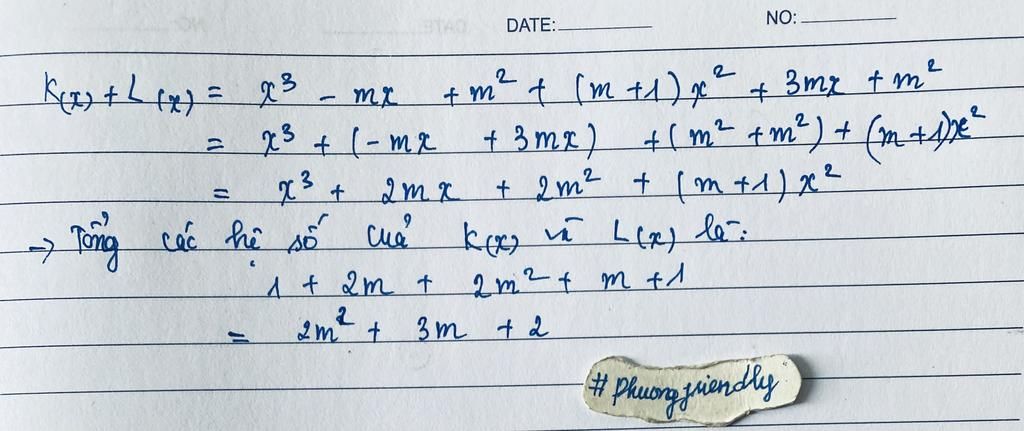 DATE: NO:
K(x) + L(x) = x³ - mx + m² + (m+1)x² + 3mx + m²
= x³ + (-mx + 3mx) + (m² + m²) + (m+1)x²
= x³ + 2mx + 2m² + (m+1)x²
→ Tổng các hệ số của K(x) và L(x) là:
1 + 2m + 2m² + m + 1
= 2m² + 3m + 2
#phuongfriendly